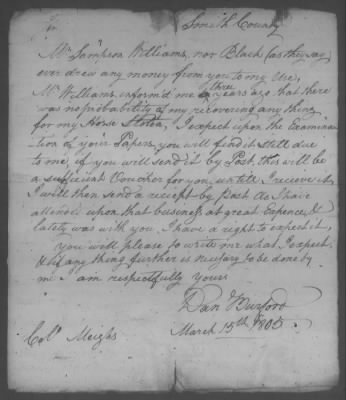 Sir,
Smith County
Mr. Sampson Williams, nor Black (as they say
ever drew any money from you to my Use,
Mr. Williams inform'd me three years ago that there
was no probability of my recovering any thing
for my Horse Stolen, I expect upon the Examina-
tion of your Papers you will find it still due
to me, if you will send it by Post, this will be
a sufficient Voucher for you, untill I recieve it
I will then send a receipt by Post As I have
attended upon that business at great Expence, &
lately was with you, I have a right to expect it,
you will please to write me what I expect,
& if any thing further is necessary to be done by
me I am respectfully yours
Danl Burford
March 15th 1805.
Col. Meighs